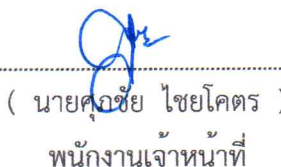 ( นายศุภชัย ไชยโคตร )
พนักงานเจ้าหน้าที่